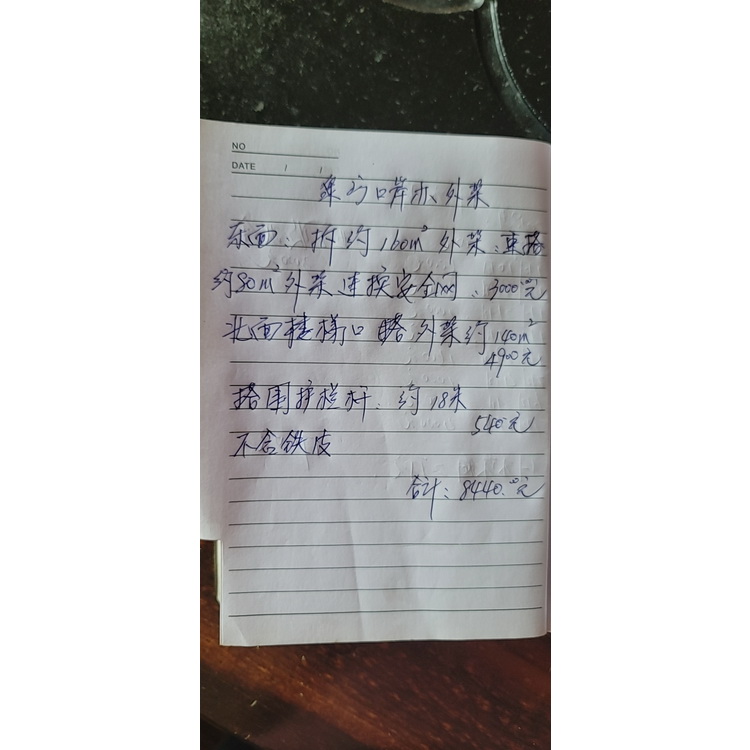 NO
DATE / /
外架
东面：拆约160m²外架、重搭
约80m²外架连换安全网、3000元
北面楼梯口 搭外架约140m²
4900元
搭围护栏杆：约18米
540元
不含铁皮
合计：8440.00元